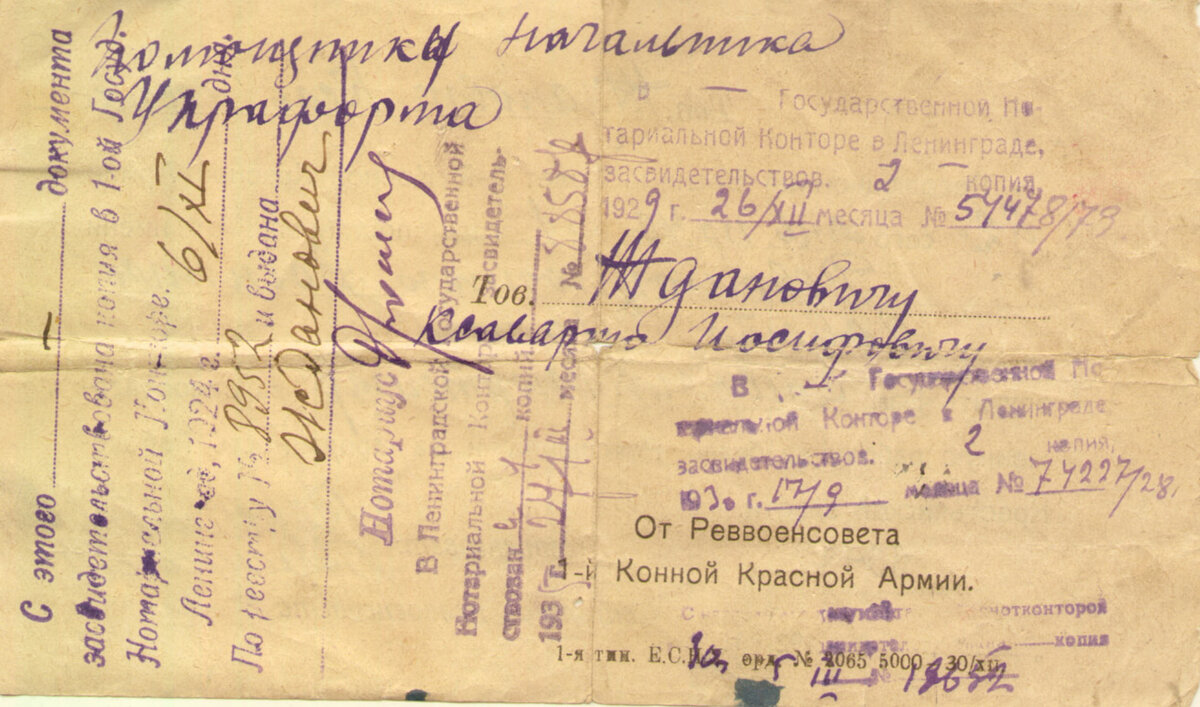 Помощнику Начальника
Украфорта
В — Государственной Но-
тариальной Конторе в Ленинграде,
засвидетельствов. 2 — копия,
1929 г. 26/XII месяца № 51478/79
Тов. Ждановичу
Ксаверию Иосифовичу
В Государственной Но-
тариальной Конторе в Ленинграде
засвидетельствов. 2 копия,
1930 г. 17/9 месяца № 74227/28
От Реввоенсовета
1-й Конной Красной Армии.
нотконторой
копия
III № 18652
1-я тип. Е.С.Н.Х. орд. № 2065 5000 30/XII
С этого — документа
засвидетельствована копия в 1-ой Госуд.
Нотариальной Конторе.
Ленинград, 1924 г. 6/XI дня.
По реестру № 8952 и выдана
Жданович
Нотариус
В Ленинградской Государственной
Нотариальной Конторе засвидетель-
ствован копий
193 г. 24/ месяца № 88587